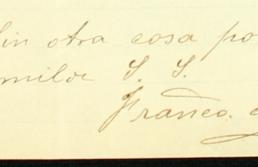 Sin otra cosa po
umilde S. S.
Franco.